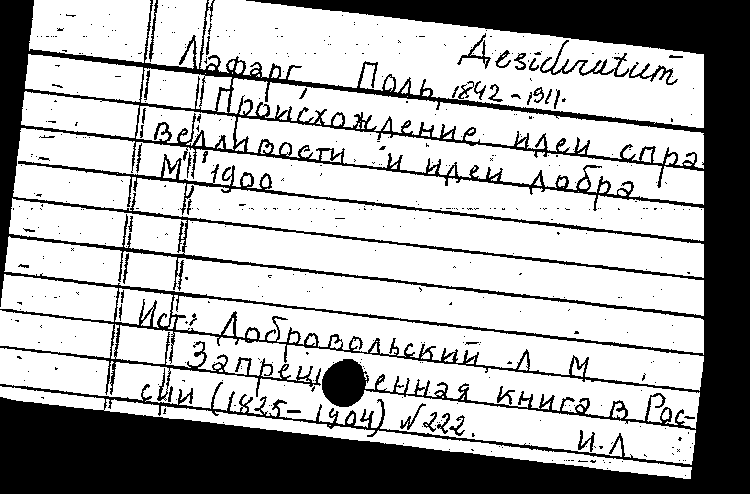 Desideratum
Лафарг, Поль, 1842-1911.
Происхождение идеи спра
ведливости и идеи добра
М, 1900
Ист: Добровольский, Л. М.
Запрещенная книга в Рос-
сии (1825-1904) № 222.
И.Л.